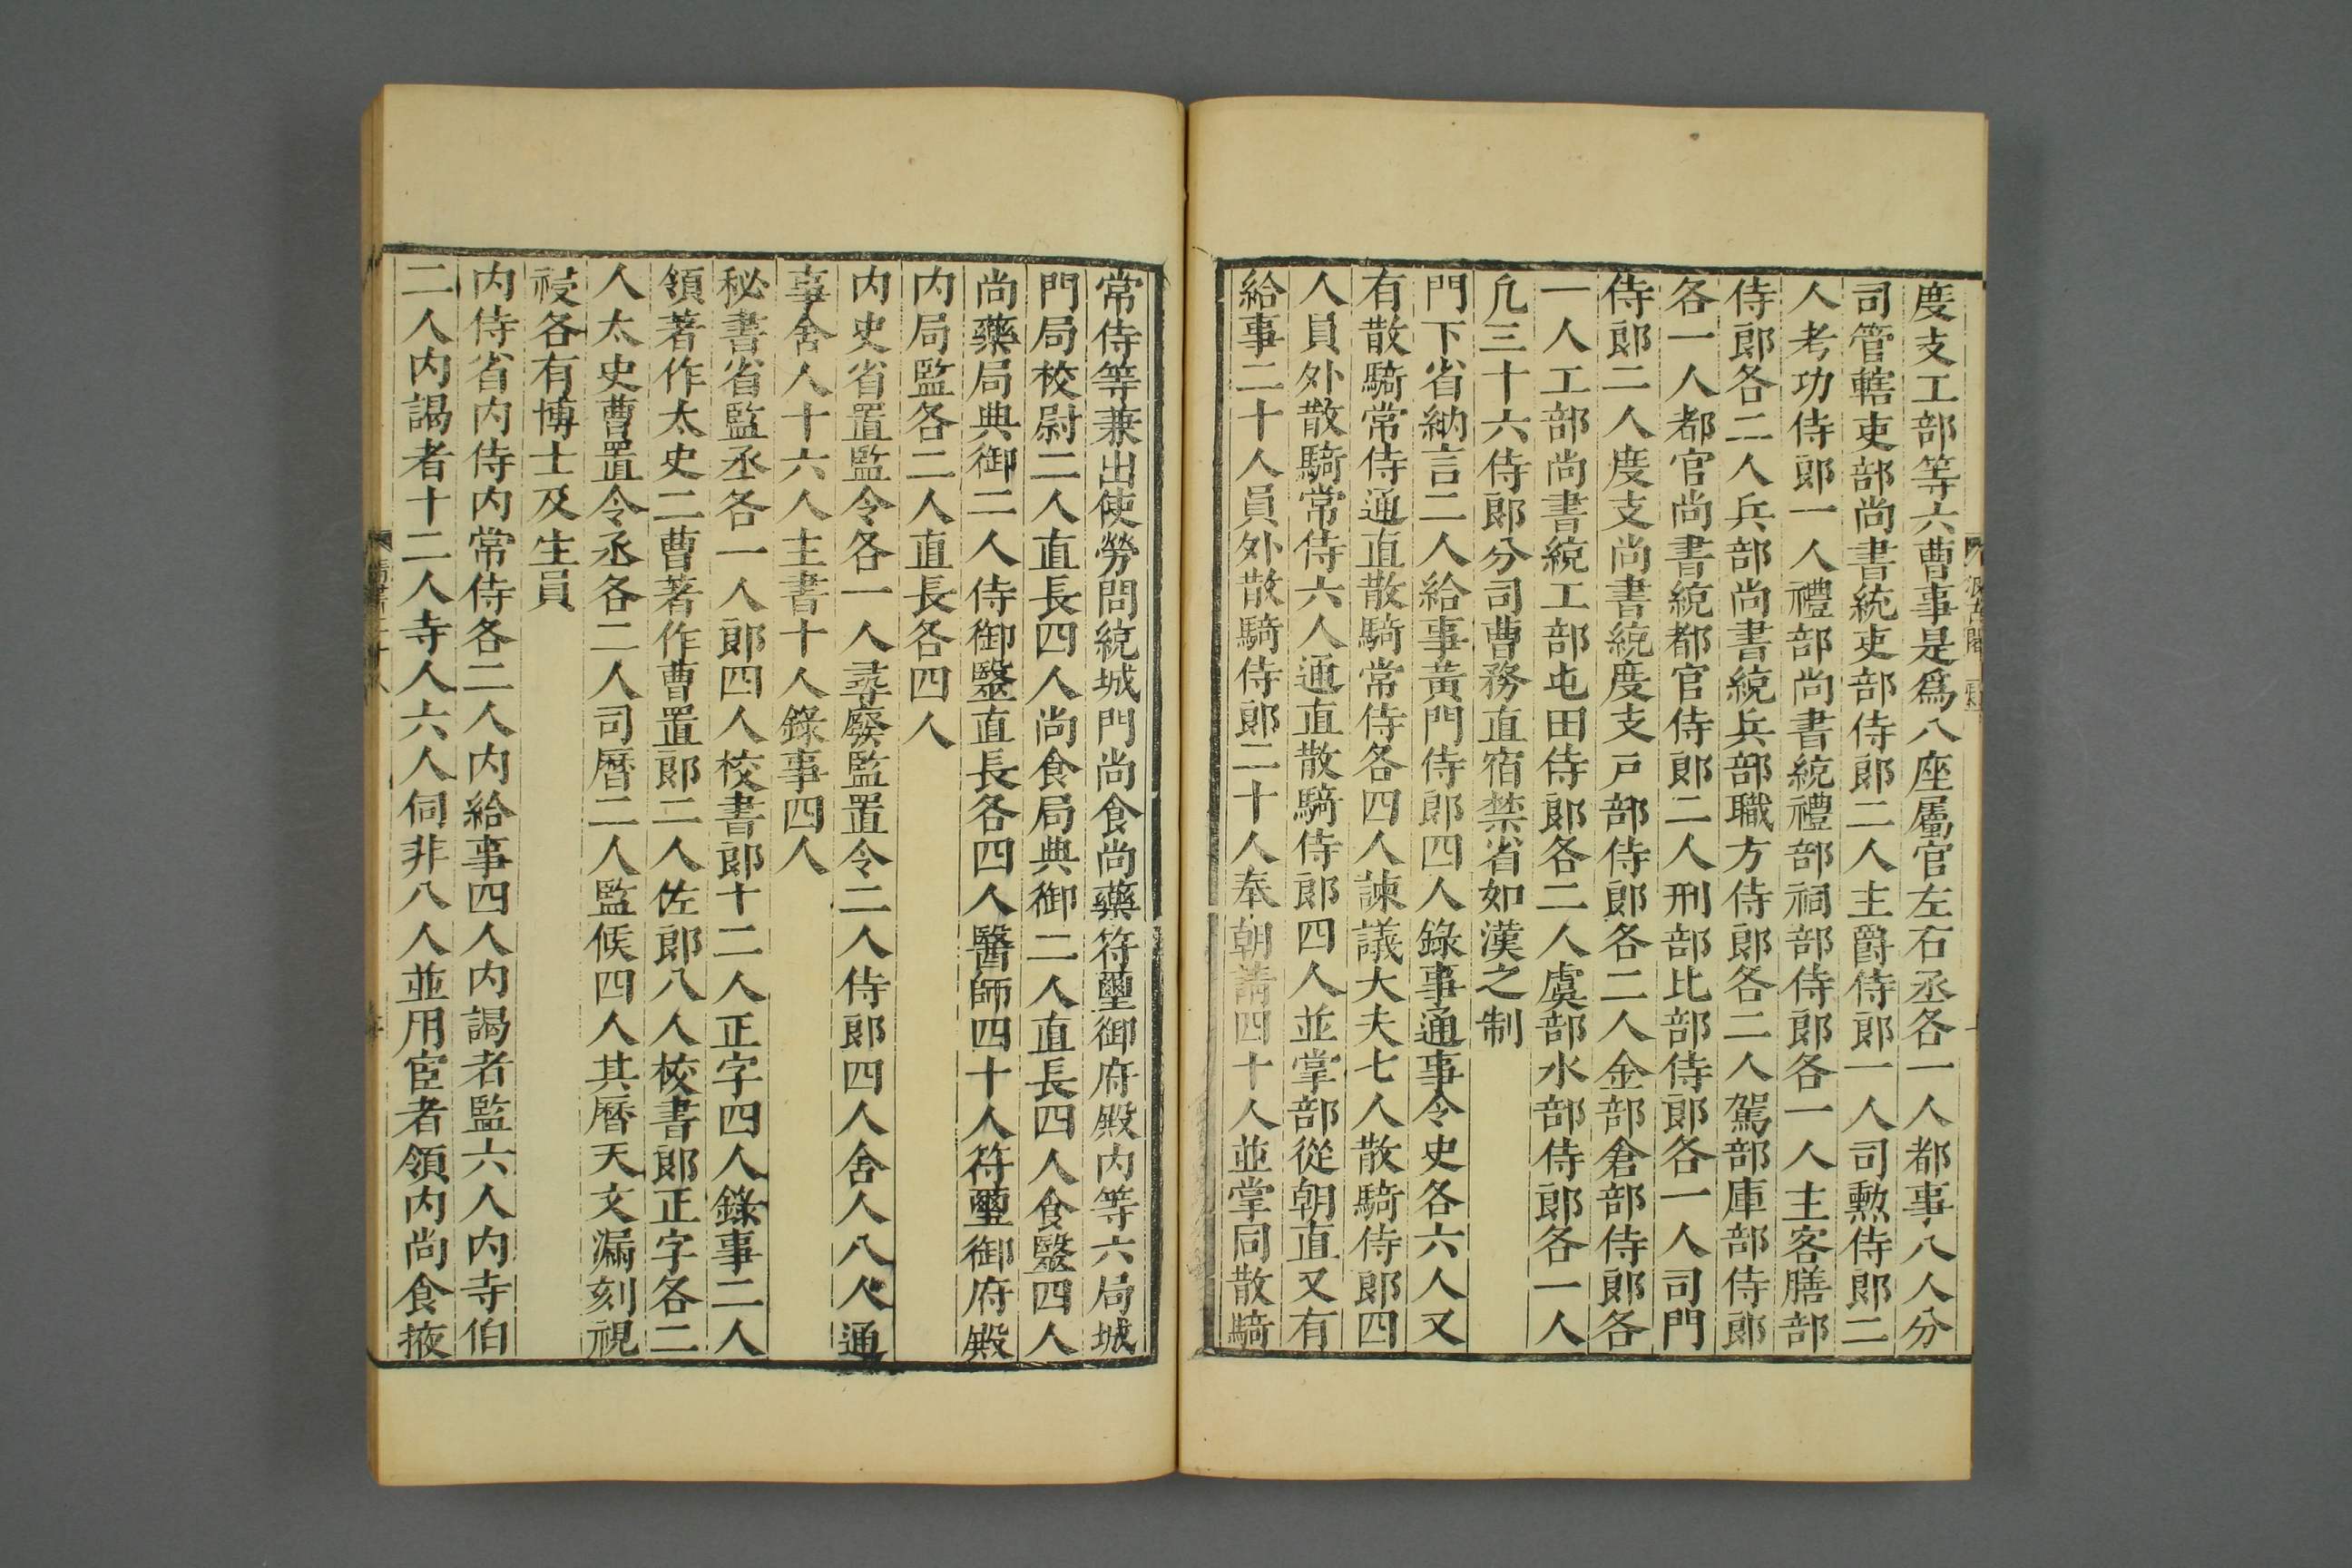 度支工部等六曹事是爲八座屬官左右丞各一人都事八人分
司管轄吏部尚書統吏部侍郎二人主爵侍郎一人司勲侍郎二
人考功侍郎一人禮部尚書統禮部祠部侍郎各一人主客膳部
侍郎各二人兵部尚書統兵部職方侍郎各二人駕部庫部侍郎
各一人都官尚書統都官侍郎二人刑部比部侍郎各一人司門
侍郎二人度支尚書統度支戸部侍郎各二人金部倉部侍郎各
一人工部尚書統工部屯田侍郎各二人虞部水部侍郎各一人
凡三十六侍郎分司曹務直宿禁省如漢之制
門下省納言二人給事黃門侍郎四人錄事通事令史各六人又
有散騎常侍通直散騎常侍各四人諫議大夫七人散騎侍郎四
人員外散騎常侍六人通直散騎侍郎四人並掌部從朝直又有
給事二十人員外散騎侍郎二十人奉朝請四十人並掌同散騎
常侍等兼出使勞問統城門尚食尚藥符璽御府殿内等六局城
門局校尉二人直長四人尚食局典御二人直長四人食毉四人
尚藥局典御二人侍御毉直長各四人醫師四十人符璽御府殿
内局監各二人直長各四人
内史省置監令各一人尋廢監置令二人侍郎四人舍人八人通
事舍人十六人主書十人錄事四人
秘書省監丞各一人郎四人校書郎十二人正字四人錄事二人
領著作太史二曹著作曹置郎二人佐郎八人校書郎正字各二
人太史曹置令丞各二人司曆二人監候四人其曆天文漏刻視
祲各有博士及生員
内侍省内侍内常侍各二人内給事四人内謁者監六人内寺伯
二人内謁者十二人寺人六人伺非八人並用宦者領内尚食掖